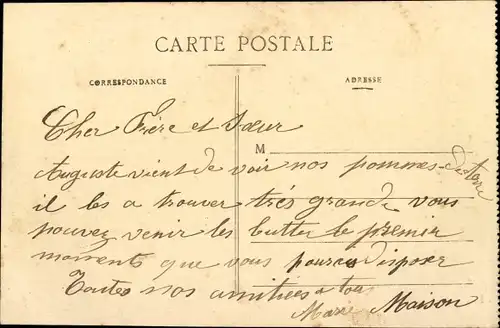 CARTE POSTALE
CORRESPONDANCE
ADRESSE
M
Cher Frère et Sœur
Auguste vient de voir nos pommes de terre
il les a trouver très grande vous
pouvez venir les butter le premier
moments que vous pourez disposer
Toutes nos amitiées a tous
Marie Maison